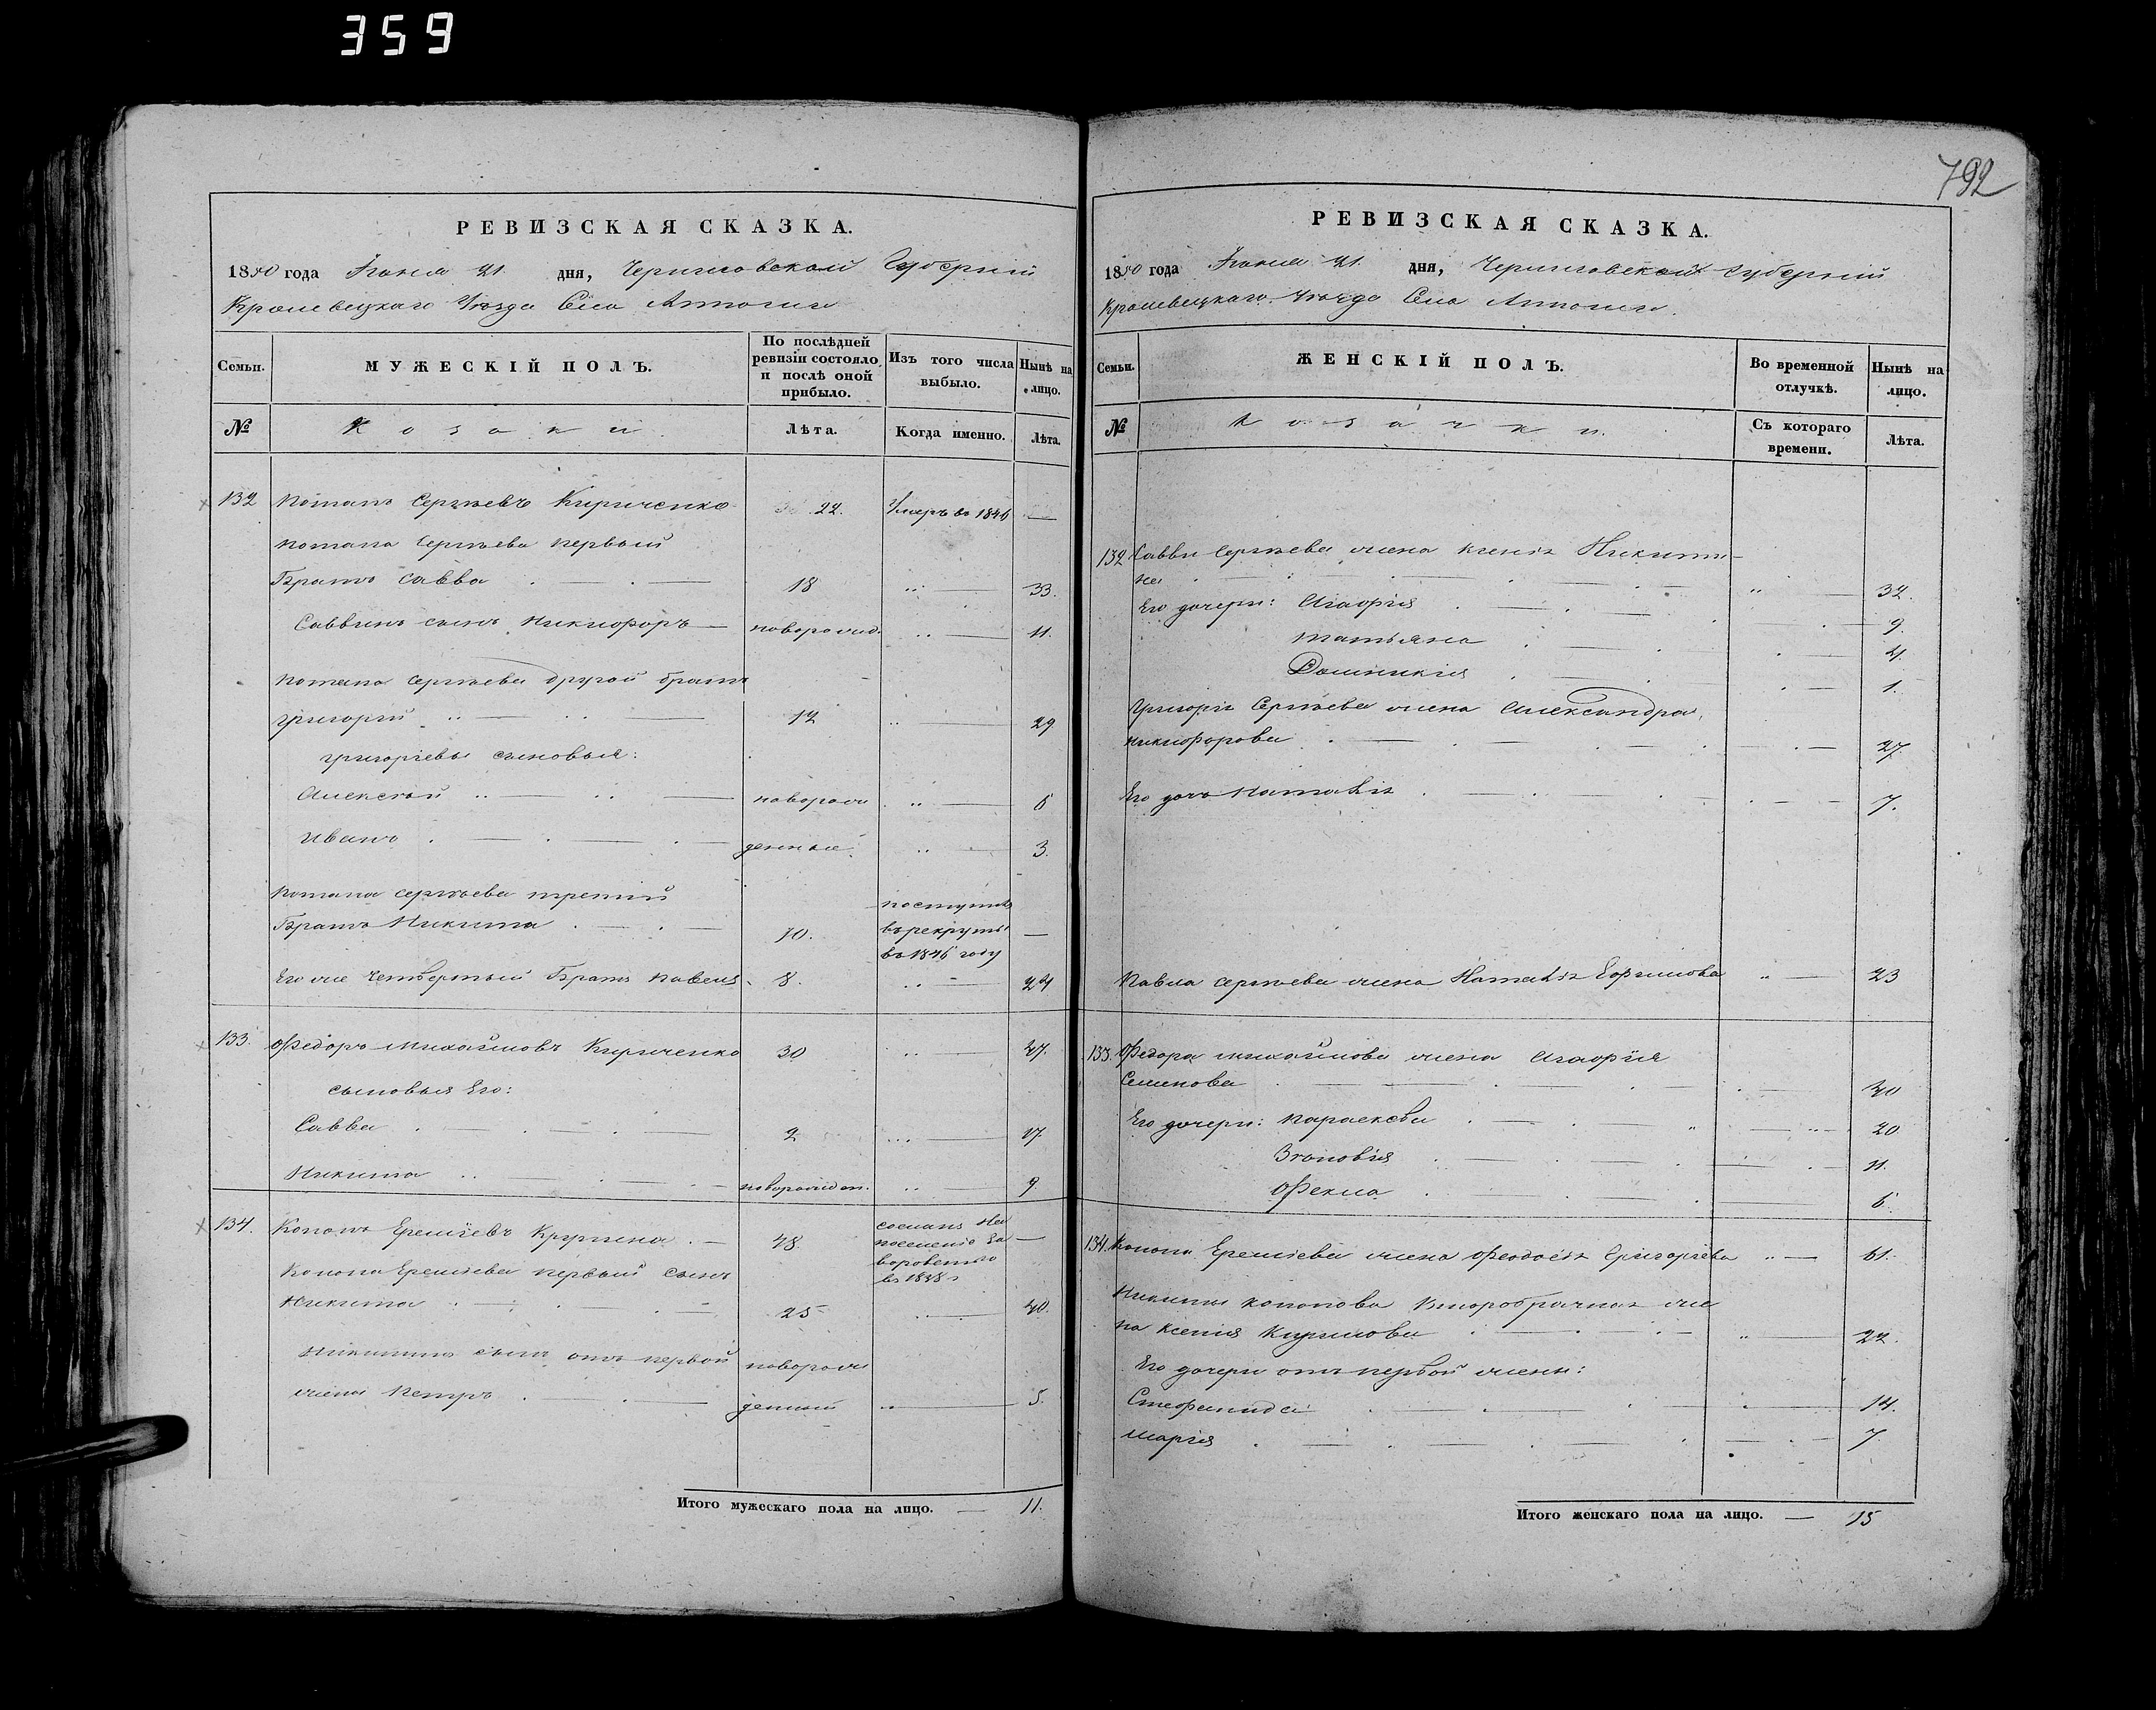 359
792
РЕВИЗСКАЯ СКАЗКА.
1850 года Іюня 21. дня, Черниговской Губерніи
Кролевецкаго Уѣзда Села
Семьи. МУЖЕСКІЙ ПОЛЪ. По послѣдней ревизіи состояло и послѣ оной прибыло. Изъ того числа выбыло. Нынѣ на лицо.
№ Козаки. Лѣта. Когда именно. Лѣта.
132 Потапъ Сергѣевъ Кириченко 22. Умеръ въ 1846 —
Потапа Сергѣева первый
Братъ Савва 18 33.
Саввинъ сынъ Никифоръ новорожд. 11.
Потапа Сергѣева другой братъ
Григорій 12 29
Григоріевы сыновья:
Алексѣй новорож 6
Иванъ денные 3.
Потапа Сергѣева третій
Братъ Никита 10. поступилъ въ рекруты въ 1846 году —
Его же четвертый Братъ Павелъ 8. 24
133. Федоръ Михайловъ Кириченко 30 47.
сыновья Его:
Савва 2 17.
Никита новорожден. 9
134. Кононъ Еремѣевъ 48. сосланъ на поселеніе за воровство въ 1838 —
Конона Еремѣева первый Сынъ
Никита 25 40.
Никитинъ сынъ отъ первой новорож
жены Петръ денный 5.
Итого мужескаго пола на лицо. — 11.
РЕВИЗСКАЯ СКАЗКА.
1850 года Іюня 21. дня, Черниговской Губерніи
Кролевецкаго Уѣзда Села
Семьи. ЖЕНСКІЙ ПОЛЪ. Во временной отлучкѣ. Нынѣ на лицо.
№ Козачки. Съ котораго времени. Лѣта.
132 Саввы Сергѣева жена Ксенія Никити-
на 32.
Его дочери: Агафія 9.
Татьяна 4.
Домникія 1.
Григорія Сергѣева жена Александра
Никифорова 27.
Его дочь Наталія 7.
Павла Сергѣева жена Наталія Ефимова 23
133. Федора Михайлова жена Агафія
Семенова 40
Его дочери: Параскева 20.
Зѣновія 11.
Фекла 6.
134. Конона Еремѣева жена Феодосія Григорьева 61.
Никиты Кононова второбрачная же
на Ксенія Кирилова 22.
Его дочери отъ первой жены:
Стефанида 14.
Марія 7.
Итого женскаго пола на лицо. — 15